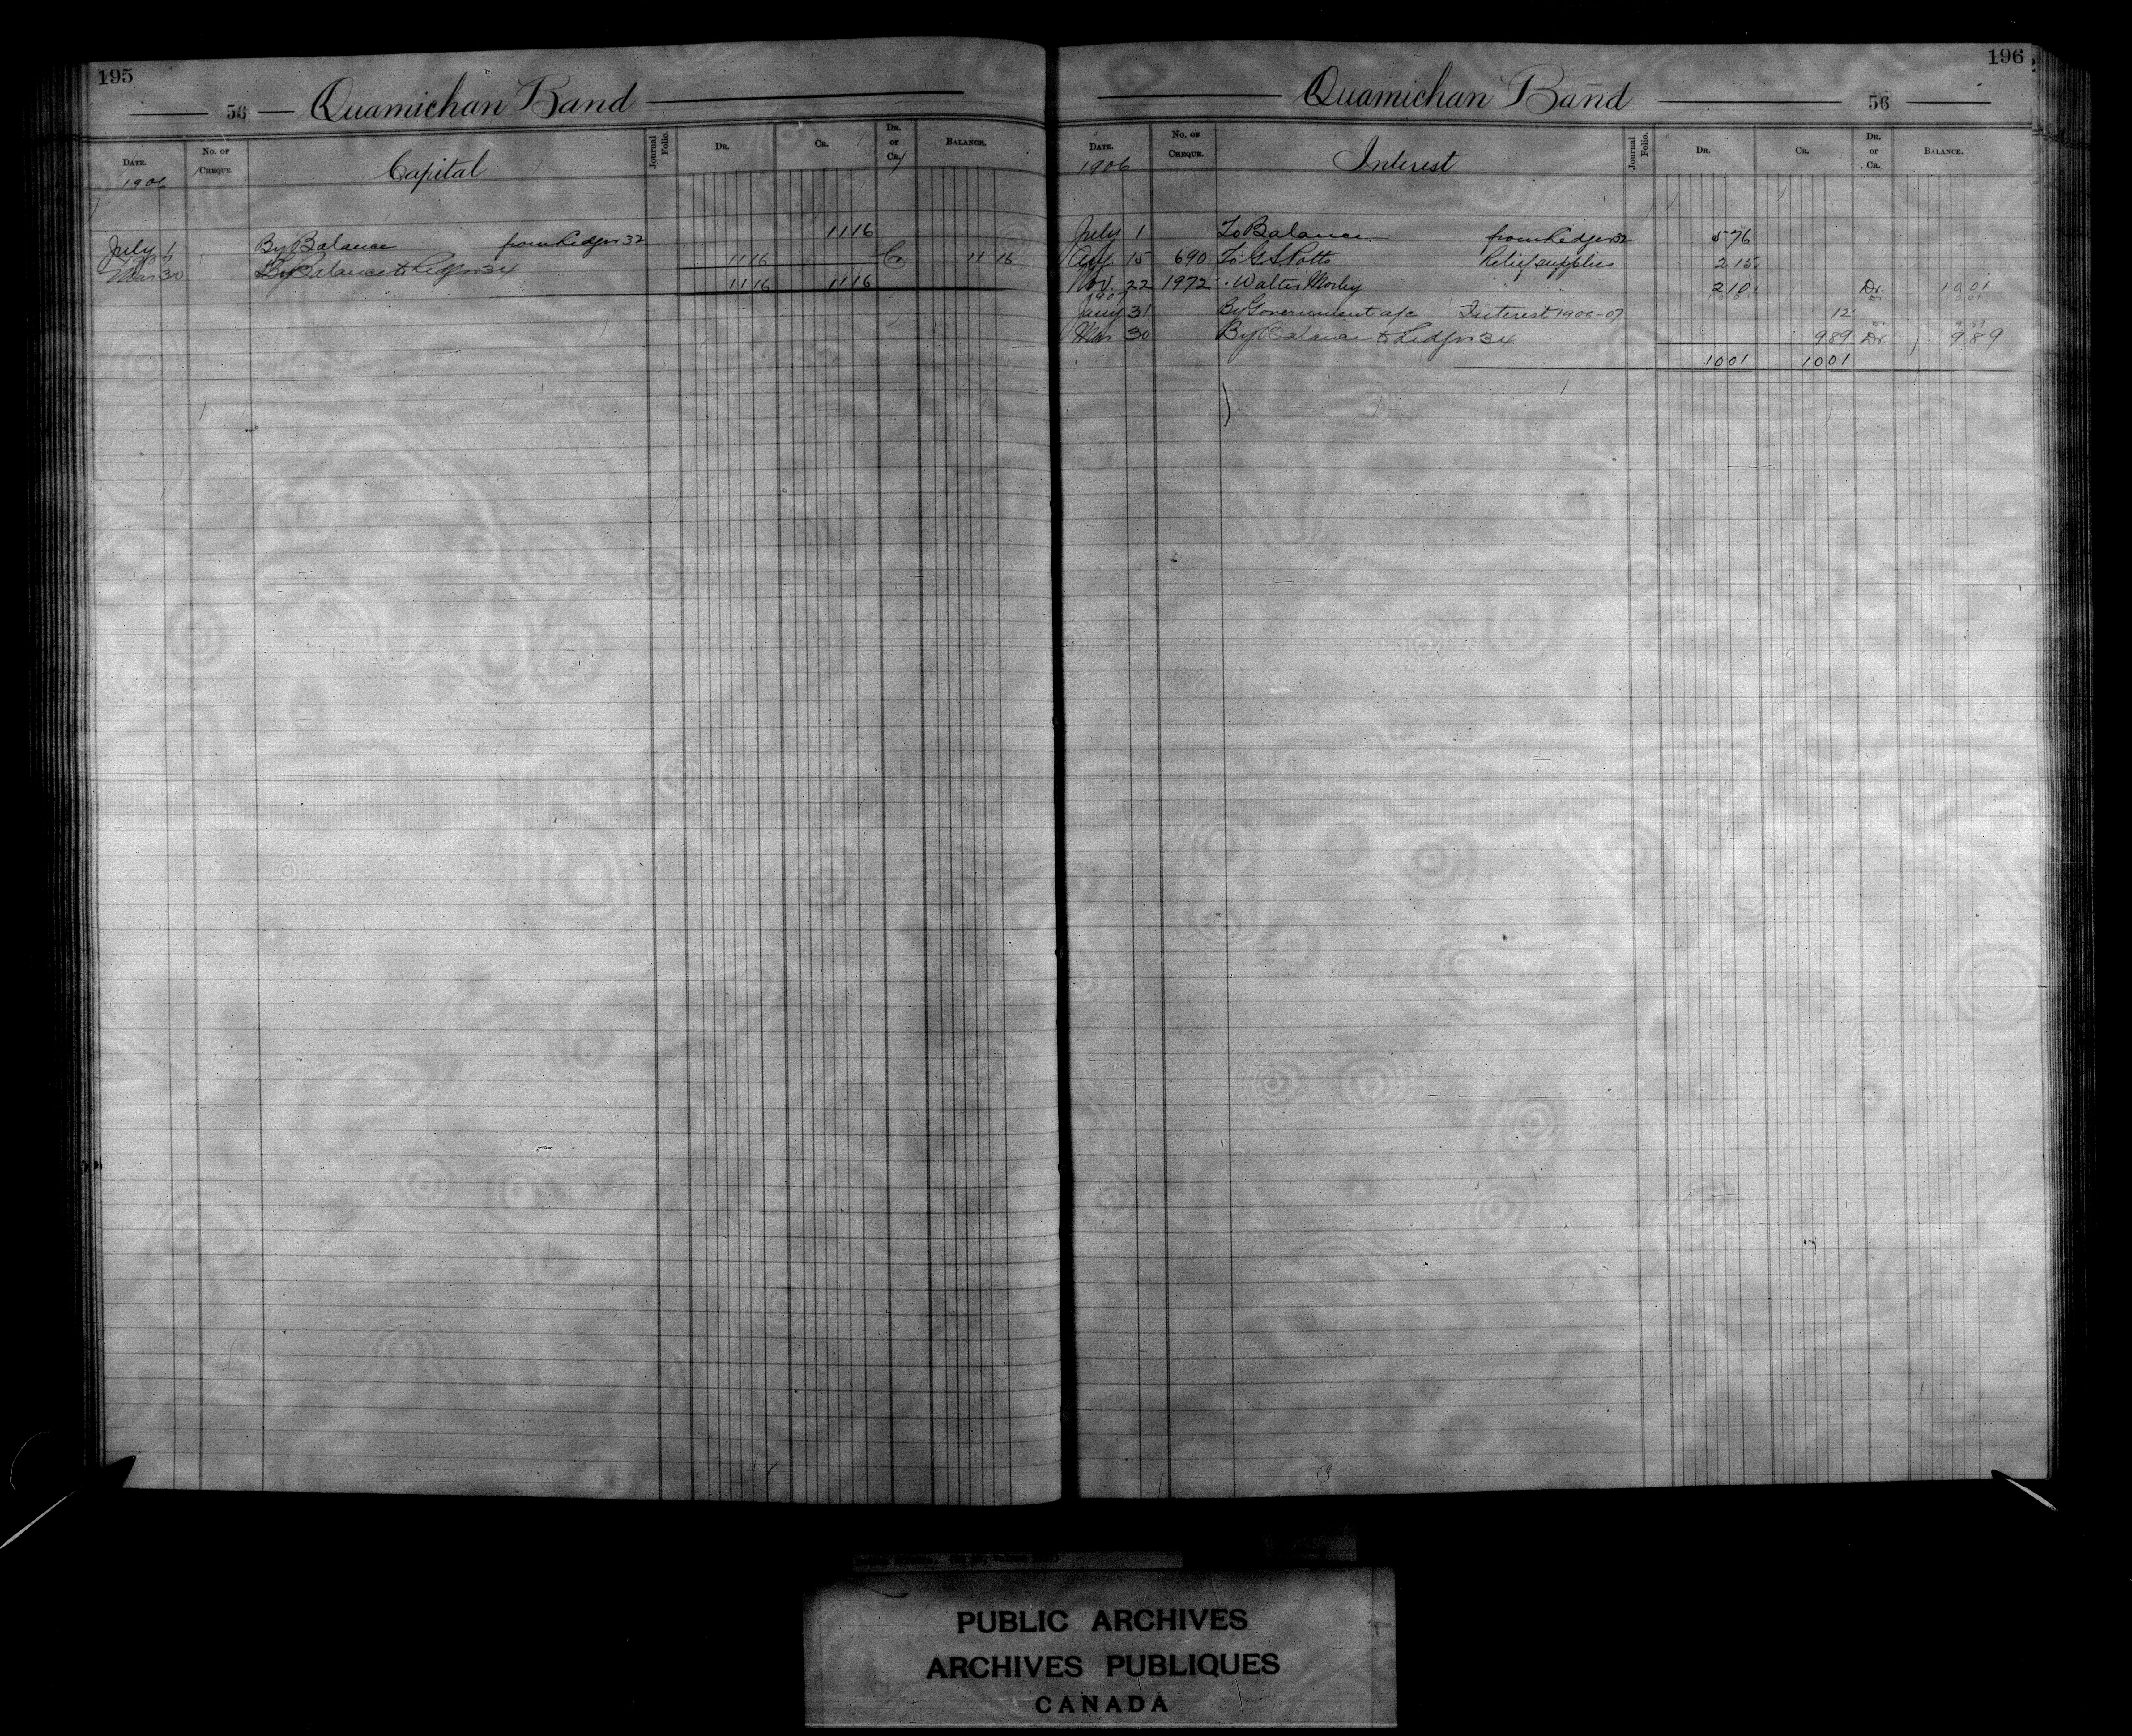 195
56 Quamichan Band
Date. No. of Cheque. Capital Journal Folio. Dr. Cr. Dr. or Cr. Balance.
1906
July 1 By Balance from Ledger 32 11 16
1907
Mar 30 To Balance to Ledger 34 11 16 Cr. 11 16
11 16 11 16
196
Quamichan Band 56
Date. No. of Cheque. Interest Journal Folio. Dr. Cr. Dr. or Cr. Balance.
1906
July 1 To Balance from Ledger 32 5 76
Aug. 15 690 To G S Potts Relief supplies 2 15
Nov. 22 1972 " Walter Morley " " 2 10 Dr. 10 01
1907
Jany 31 By Government a/c Interest 1906-07 12
Mar 30 By Balance to Ledger 34 9 89 Dr. 9 89
10 01 10 01
PUBLIC ARCHIVES
ARCHIVES PUBLIQUES
CANADA